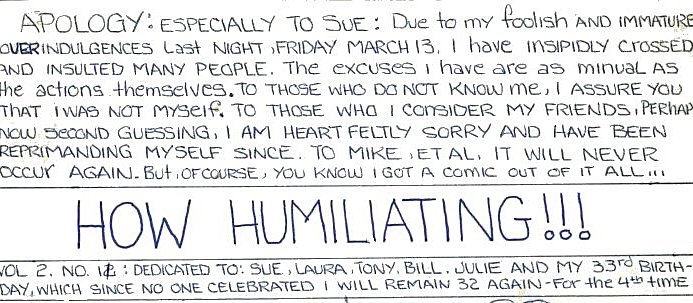 APOLOGY: ESPECIALLY TO SUE: Due to my foolish AND IMMATURE
OVERINDULGENCES Last NIGHT, FRIDAY MARCH 13, I have INSIPIDLY CROSSED
AND INSULTED MANY PEOPLE. The excuses I have are as minual AS
the actions themselves. TO THOSE WHO DO NOT KNOW me, I ASSURE YOU
THAT I WAS NOT MYSELF. TO THOSE WHO I CONSIDER MY FRIENDS, PERHAP
NOW SECOND GUESSING, I AM HEART FELTLY SORRY AND HAVE BEEN
REPRIMANDING MYSELF SINCE. TO MIKE, ET AL, IT WILL NEVER
OCCUR AGAIN. But, OF COURSE, YOU KNOW I GOT A COMIC OUT OF IT ALL...
HOW HUMILIATING!!!
VOL 2. NO. : DEDICATED TO: SUE, LAURA, TONY, BILL, JULIE AND MY 33rd BIRTH-
DAY, WHICH SINCE NO ONE CELEBRATED I WILL REMAIN 32 AGAIN - FOR the 4th time